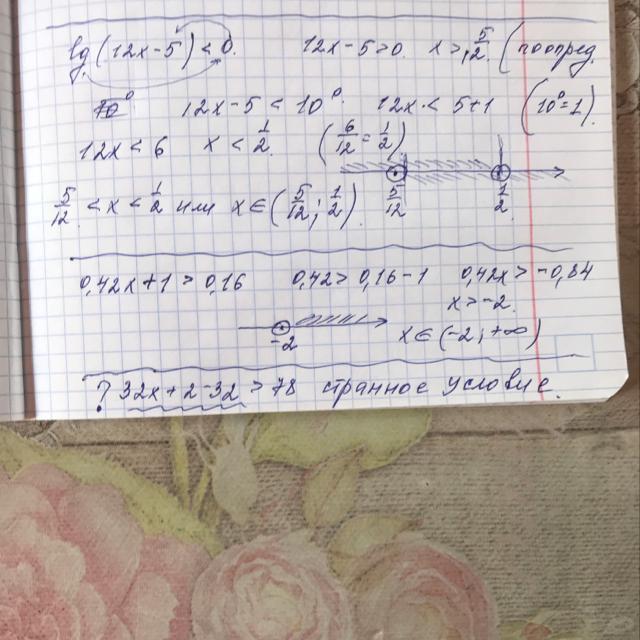 lg(12x-5)<0. 12x-5>0. x>5/12. (по опред.
10⁰ 12x-5<10⁰. 12x<5+1 (10⁰=1).
12x<6 x<1/2. (6/12=1/2)
5/12 1/2
5/12<x<1/2 или x∈(5/12; 1/2).
0,42x+1>0,16 0,42>0,16-1 0,42x>-0,84
x>-2.
-2 x∈(-2; +∞)
? 32x+2-32>78 странное условие.